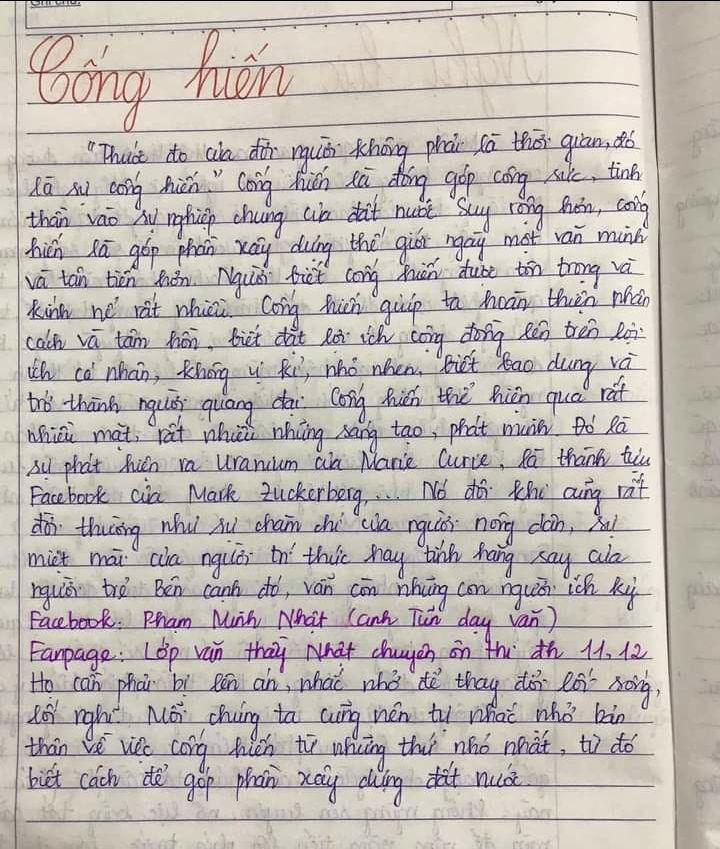 Ghi chú:
Cống hiến
"Thước đo của đời người không phải là thời gian, đó
là sự cống hiến" Cống hiến là đóng góp công sức, tinh
thần vào sự nghiệp chung của đất nước. Suy rộng hơn, cống
hiến là góp phần xây dựng thế giới ngày một văn minh
và tân tiến hơn. Người biết cống hiến được tôn trọng và
kính nể rất nhiều. Cống hiến giúp ta hoàn thiện nhân
cách và tâm hồn, biết đặt lợi ích cộng đồng lên trên lợi
ích cá nhân, không vị kỉ, nhỏ nhen, biết bao dung và
trở thành người quảng đại. Cống hiến thể hiện qua rất
nhiều mặt, rất nhiều những sáng tạo, phát minh. Đó là
sự phát hiện ra Uranium của Marie Curie, là thành tựu
Facebook của Mark Zuckerberg,... Nó đôi khi cũng rất
đời thường như sự chăm chỉ của người nông dân, sự
miệt mài của người trí thức hay tính hăng say của
người trẻ. Bên cạnh đó, vẫn còn những con người ích kỷ
Facebook: Phạm Minh Nhật (anh Tũn dạy văn)
Fanpage: Lớp văn thầy Nhật chuyên ôn thi đh 11, 12
Họ cần phải bị lên án, nhắc nhở để thay đổi lối sống,
lối nghĩ. Mỗi chúng ta cũng nên tự nhắc nhở bản
thân về việc cống hiến từ những thứ nhỏ nhất, từ đó
biết cách để góp phần xây dựng đất nước.